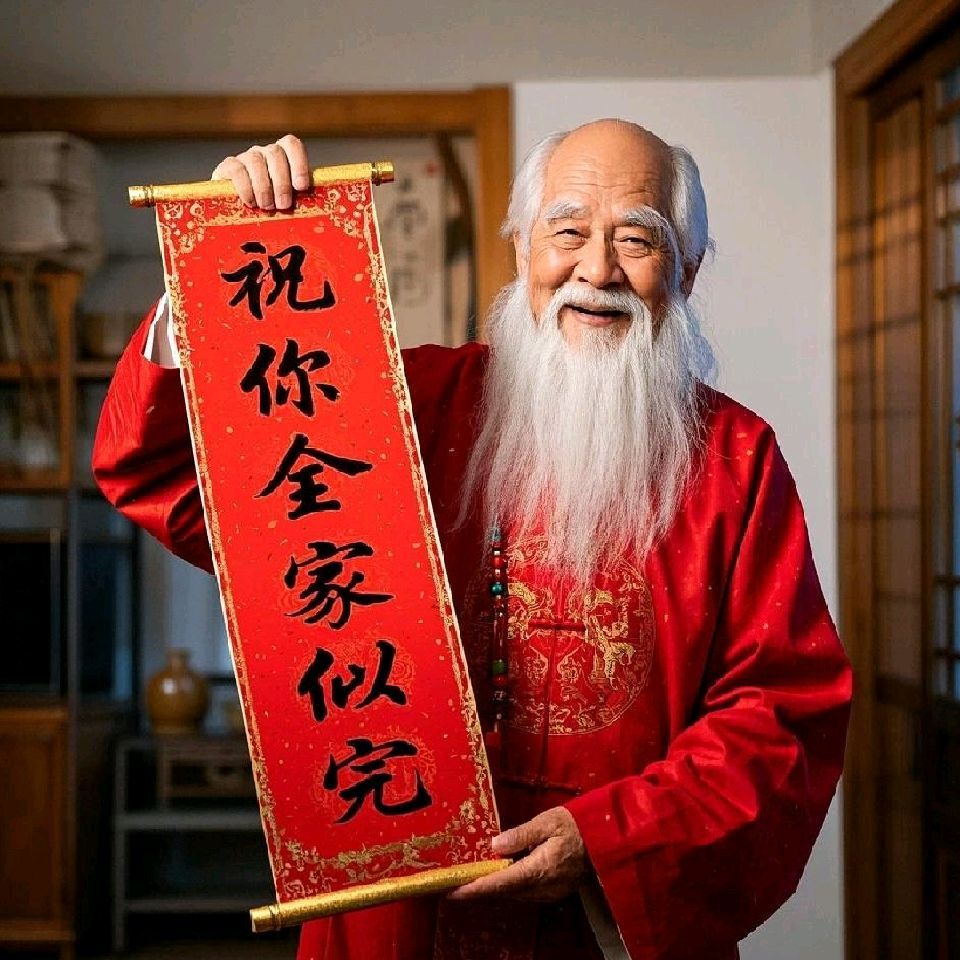 祝你全家似完